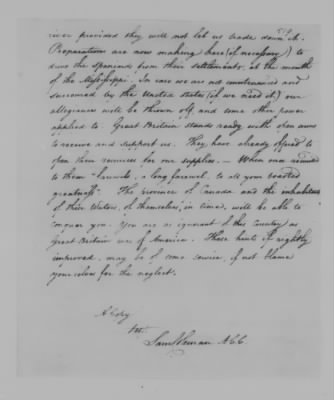 river provided they will not let us trade down it.
Preparations are now making here (if necessary) to
drive the Spaniards from their settlements, at the mouth
of the Mississippi. In case we are not countenanced and
succoured by the United States (if we need it) our
allegiance will be thrown off, and some other power
applied to. Great Britain stands ready with open arms
to receive and support us. They have already offered to
open their resources for our supplies. — When once reunited
to them "farewell, a long farewel, to all your boasted
greatness". The province of Canada and the inhabitants
of these waters, of themselves, in time, will be able to
conquer you. You are as ignorant of this Country as
Great Britain was of America. These hints if rightly
improved, may be of some service, if not blame
yourselves for the neglect.
A Copy
Saml